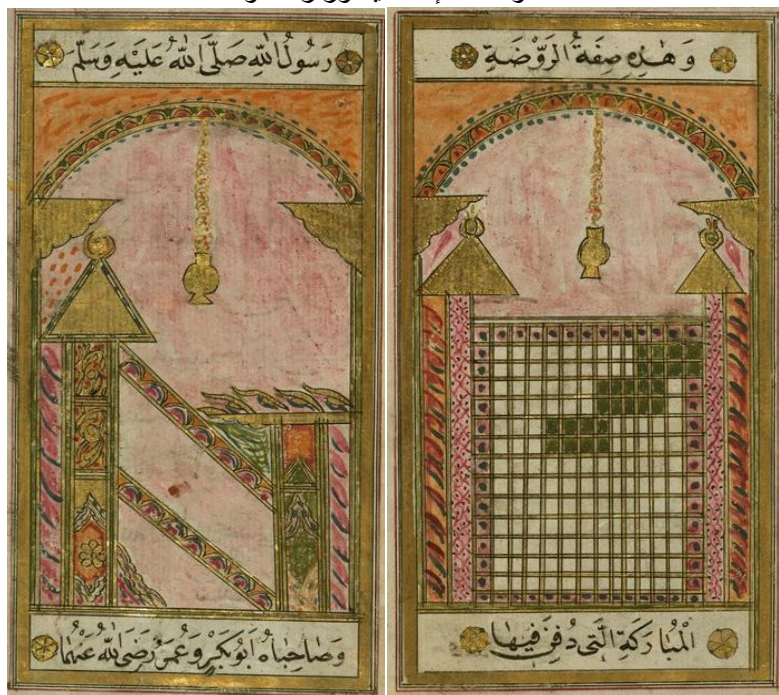 وَهٰذِهِ صِفَةُ الرَّوْضَةِ
الْمُبَارَكَةِ الَّتِى دُفِنَ فِيهَا
رَسُولُ اللّٰهِ صَلَّى اللّٰهُ عَلَيْهِ وَسَلَّمَ
وَصَاحِبَاهُ اَبُو بَكْرٍ وَعُمَرُ رَضِىَ اللّٰهُ عَنْهُمَا